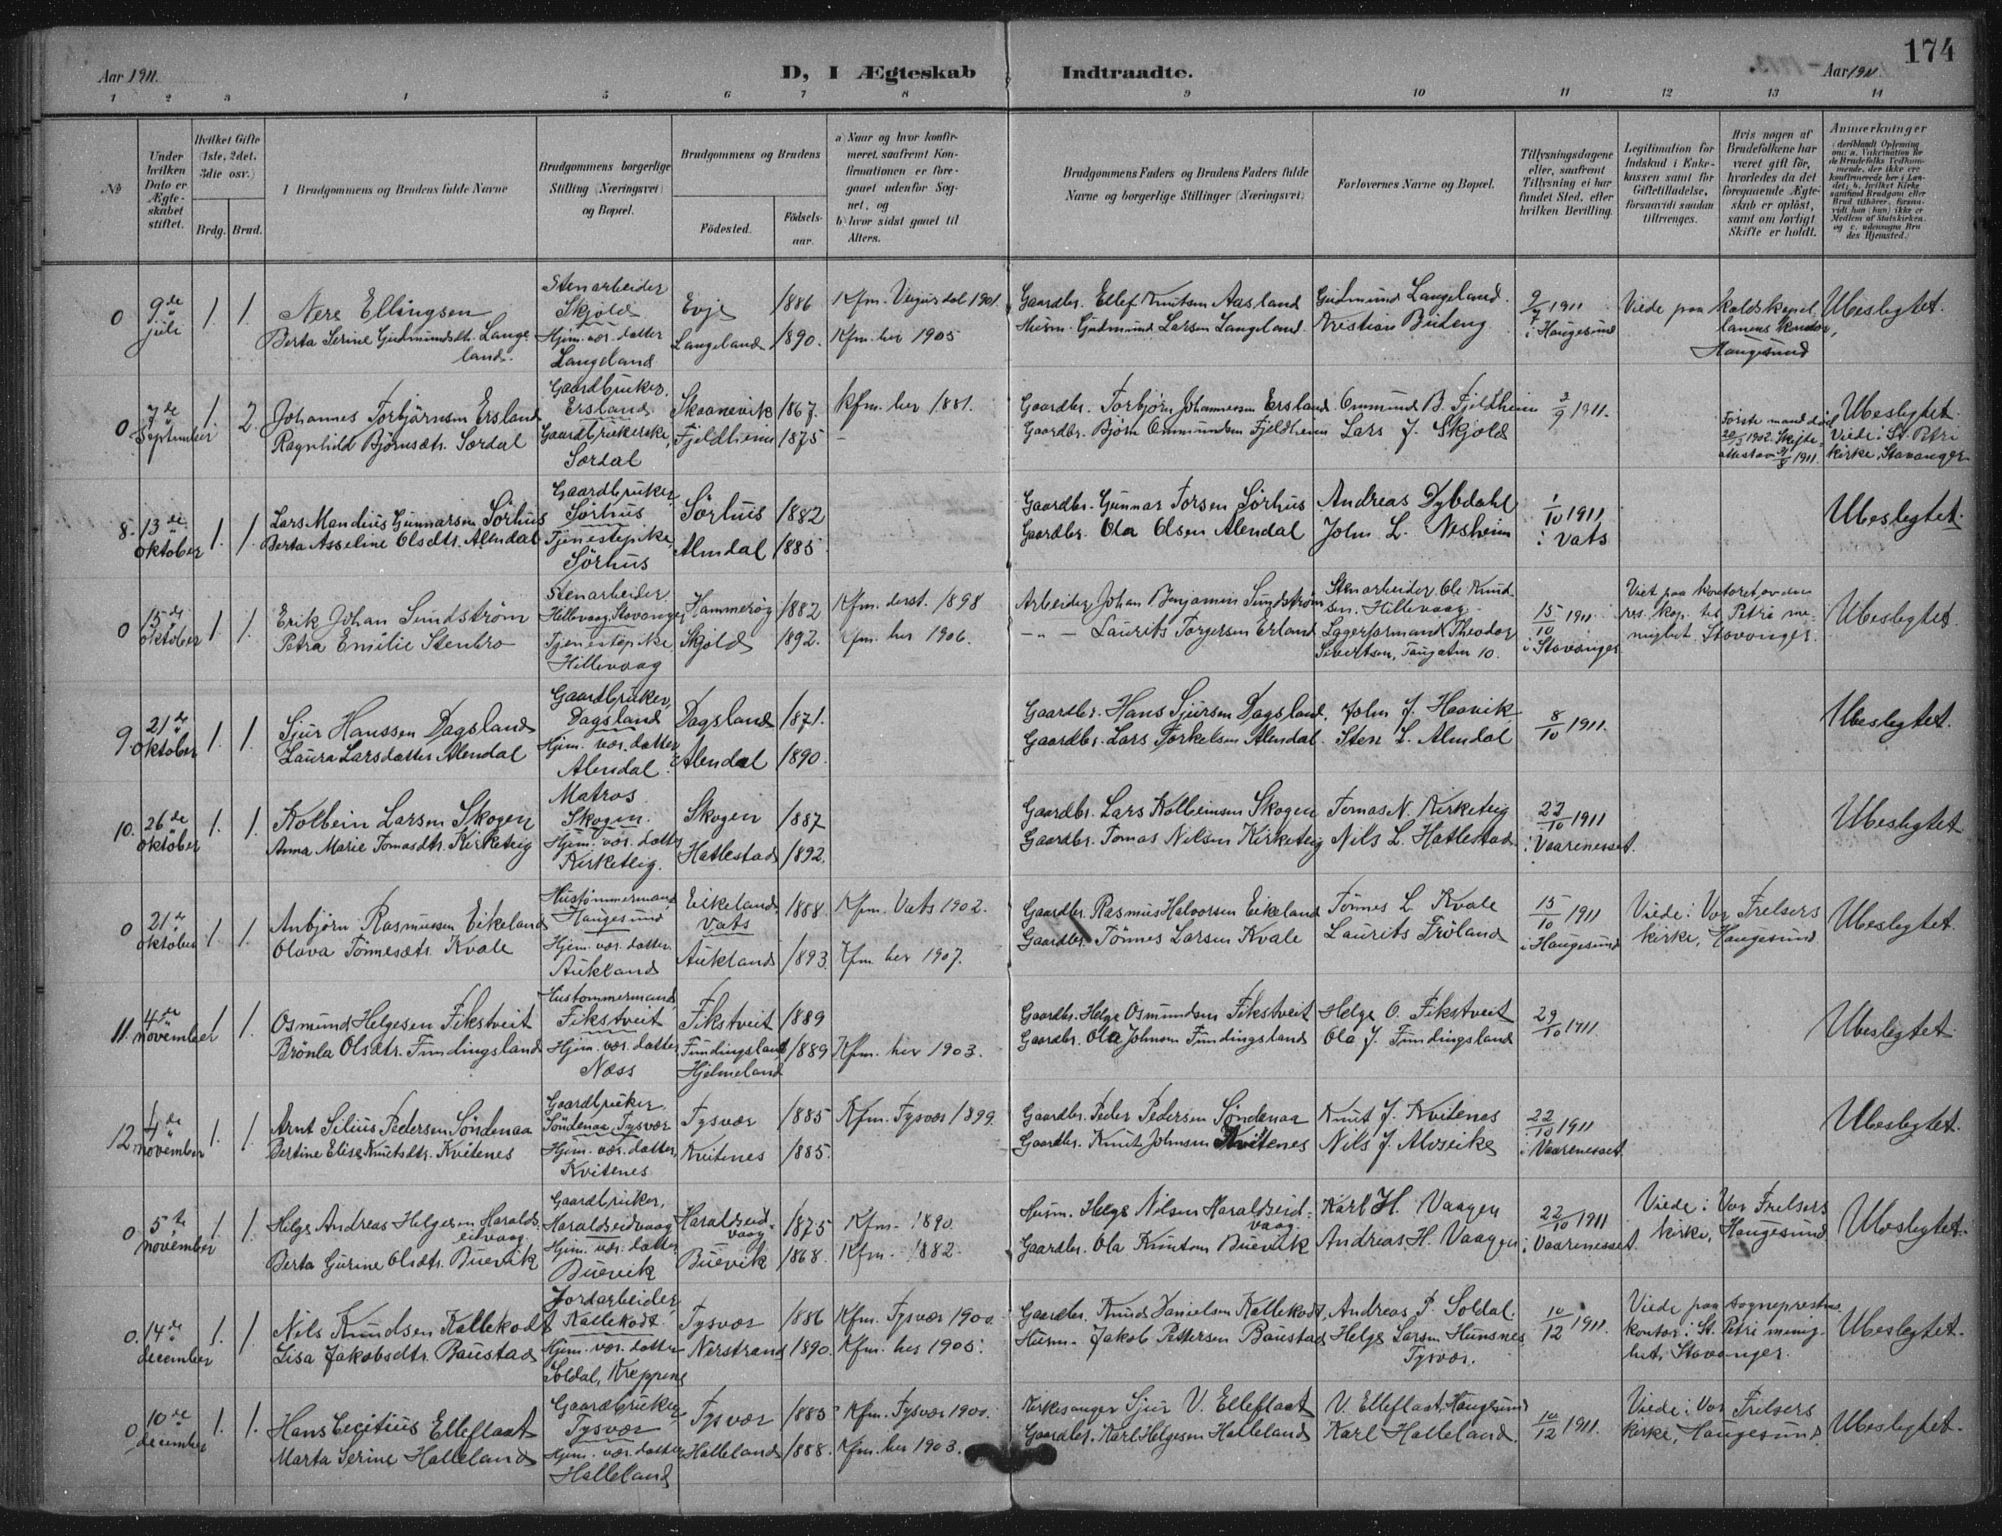 174
Aar 1911.
D, I Ægteskab Indtraadte.
Aar 1911
1 2 3 4 5 6 7 8 9 10 11 12 13 14
No.
Under hvilken Dato er Ægteskabet stiftet.
Hvilket Gifte (1ste, 2det, 3die osv.)
Brdg. Brud.
Brudgommens og Brudens fulde Navne
Brudgommens borgerlige Stilling (Næringsvei) og Bopæl.
Brudgommens og Brudens
Födested. Födselsaar.
a) Naar og hvor konfirmeret, saafremt Konfirmationen er foregaaet udenfor Sognet, og
b) hvor sidst gaaet til Alters.
Brudgommens Faders og Brudens Faders fulde Navne og borgerlige Stillinger (Næringsvei)
Forlovernes Navne og Bopæl.
Tillysningsdagene eller, saafremt Tillysning ei har fundet Sted, efter hvilken Bevilling.
Legitimation for Indskud i Enkekassen samt for Giftetilladelse, forsaavidt saadan tiltrænges.
Hvis nogen af Brudefolkene har været gift før, hvorledes da det foregaaende Ægteskab er oplöst, samt om lovligt Skifte er holdt.
Anmærkninger
0 9de juli 1. 1.
Nere Ellingsen
Berta Serine Gudmundsdtr. Langeland.
Stenarbeider Skjold
Hjem. vær. datter Langeland
Evje 1886 Kfm. Vegusdal 1901.
Langeland 1890. Kfm. her 1905
Gaardbr. Ellef Knutsen Aasland
Husm. Gudmund Larsen Langeland.
Gudmund Langeland.
Kristian Büdeng
9/7 1911 i Haugesund
Viede paa kaldskapellanens kontor, Haugesund
Ubeslegtet.
0 7de September 1. 2.
Johannes Torbjørnsen Ersland
Ragnhild Bjørnsdtr. Sørdal
Gaardbruker, Ersland
Gaardbrukerske, Sørdal
Skaanevik 1867. Kfm. her 1881.
Fjeldheim 1875 -
Gaardbr. Torbjørn Johannessen Ersland
Gaardbr. Bjørn Ommundsen Fjeldheim
Ommund B. Fjeldheim
Lars J. Skjold
3/9 1911.
Første mand död 20/3 1902. Skifteattest av 31/8 1911.
Ubeslegtet.
Viede i St. Petri kirke, Stavanger.
8. 13de oktober 1. 1.
Lars Mandius Gunnarsen Sørhus
Berta Asseline Olsdtr. Alendal
Gaardbruker, Sørhus
Tjenestepike, Sørhus
Sørhus 1882
Almdal 1885
Gaardbr. Gunnar Torsen Sørhus
Gaardbr. Ola Olsen Alendal
Andreas Dybdahl
John L. Nesheim
1/10 1911 i Vats
Ubeslegtet.
0 15de oktober 1. 1.
Erik Johan Sundstrøm
Petra Emilie Stenbro
Stenarbeider, Hillevaag, Stavanger
Tjenestepike Hillevaag
Hammerøy 1882 Kfm. derst. 1898
Skjold 1892. Kfm. her 1906.
Arbeider Johan Benjamin Sundstrøm
-"- Laurits Torgersen Erland
Stenarbeider Ole Knudsen, Hillevaag
Lagerformand Theodor Sivertsen, Taugatn 10.
15/10 1911 i Stavanger
Viet paa kontoret av den res. kap. til Petri menighet Stavanger.
Ubeslegtet.
9 21de oktober 1. 1.
Sjur Hanssen Dagsland
Laura Larsdatter Alendal
Gaardbruker, Dagsland
Hjem. vær. datter, Alendal
Dagsland 1871.
Alendal 1890.
Gaardbr. Hans Sjursen Dagsland.
Gaardbr. Lars Torkelsen Alendal.
John J. Haavik
Sten L. Almdal
8/10 1911.
Ubeslegtet.
10. 26de oktober 1. 1.
Kolbein Larsen Skogen
Anna Marie Tomasdtr. Kirketeig
Matros Skogen.
Hjem. vær. datter Kirketeig.
Skogen 1887
Hatlestad 1892.
Gaardbr. Lars Kolbeinsen Skogen
Gaardbr. Tomas Nilsen Kirketeig
Tomas N. Kirketeig
Nils L. Hatlestad
22/10 1911 i Vaarenesset.
Ubeslegtet
0 21de oktober 1. 1.
Anbjørn Rasmussen Eikeland
Olava Tönnesdtr. Kvale
Hustømmermand Haugesund
Hjem. vær. datter. Aukland
Eikeland, Vats 1888. Kfm. Vats 1902.
Aukland 1893. Kfm. her 1907.
Gaardbr. Rasmus Halvorsen Eikeland
Gaardbr. Tönnes Larsen Kvale
Tönnes L. Kvale
Laurits Frøland
15/10 1911 i Haugesund
Viede i Vor Frelsers kirke, Haugesund.
Ubeslegtet.
11. 4de november 1. 1.
Osmund Helgesen Fikstveit
Brönla Olsdtr. Fundingsland
Hustømmermand, Fikstveit
Hjem. vær. datter Næss
Fikstveit 1889
Fundingsland Hjelmeland 1889 Kfm. her 1903.
Gaardbr. Helge Osmundsen Fikstveit
Gaardbr. Ola Johnsen Fundingsland
Helge O. Fikstveit
Ola J. Fundingsland
29/10 1911.
Ubeslegtet.
12 4de november 1. 1.
Arnt Silius Pedersen Söndenaa
Bertine Elise Knutsdtr. Kvitenes
Gaardbruker, Söndenaa, Tysvær
Hjem. vær. datter, Kvitenes
Tysvær 1885 Kfm. Tysvær 1899.
Kvitenes 1885.
Gaardbr. Peder Pedersen Söndenaa
Gaardbr. Knut Johnsen Kvitenes
Knut J. Kvitenes
Nils J. Alvseike
22/10 1911 i Vaarenesset.
Ubeslegtet.
0 5te november 1. 1.
Helge Andreas Helgesen Haraldseidvaag
Berta Gurine Olsdtr. Buevik
Gaardbruker, Haraldseidvaag
Hjem. vær. datter Buevik
Haraldseidvaag 1875 Kfm. 1890
Buevik 1868. Kfm. 1882.
Husm. Helge Nilsen Haraldseidvaag
Gaardbr. Ola Knutsen Buevik
Karl H. Vaagen
Andreas H. Vaagen
22/10 1911 i Vaarenesset
Viede i Vor Frelsers kirke, Haugesund
Ubeslegtet.
0. 14de december 1. 1.
Nils Knudsen Kallekodt
Lisa Jakobsdtr. Baustad
Jordarbeider, Kallekodt.
Hjem. vær. datter Soldal, Kreppene
Tysvær 1886 Kfm. Tysvær 1900.
Nerstrand 1890. Kfm. her 1905.
Gaardbr. Knud Danielsen Kallekodt,
Husm. Jakob Pettersen Baustad
Andreas P. Soldal.
Helge Larsen Hunsnes, Tysvær.
10/12 1911.
Viede paa sogneprestens kontor i St. Petri menighet, Stavanger.
Ubeslegtet.
0 10de december 1. 1.
Hans Cecilius Elleflaat
Marta Serine Halleland
Gaardbruker Tysvær
Hjem. vær. datter Halleland
Tysvær 1885 Kfm. Tysvær 1900.
Halleland 1888. Kfm. her 1903.
Kirkesanger Sjur V. Elleflaat
Gaardbr. Karl Helgesen Halleland
V. Elleflaat, Haugesund
Karl Halleland.
10/12 1911.
Viede i Vor Frelsers kirke, Haugesund.
Ubeslegtet.